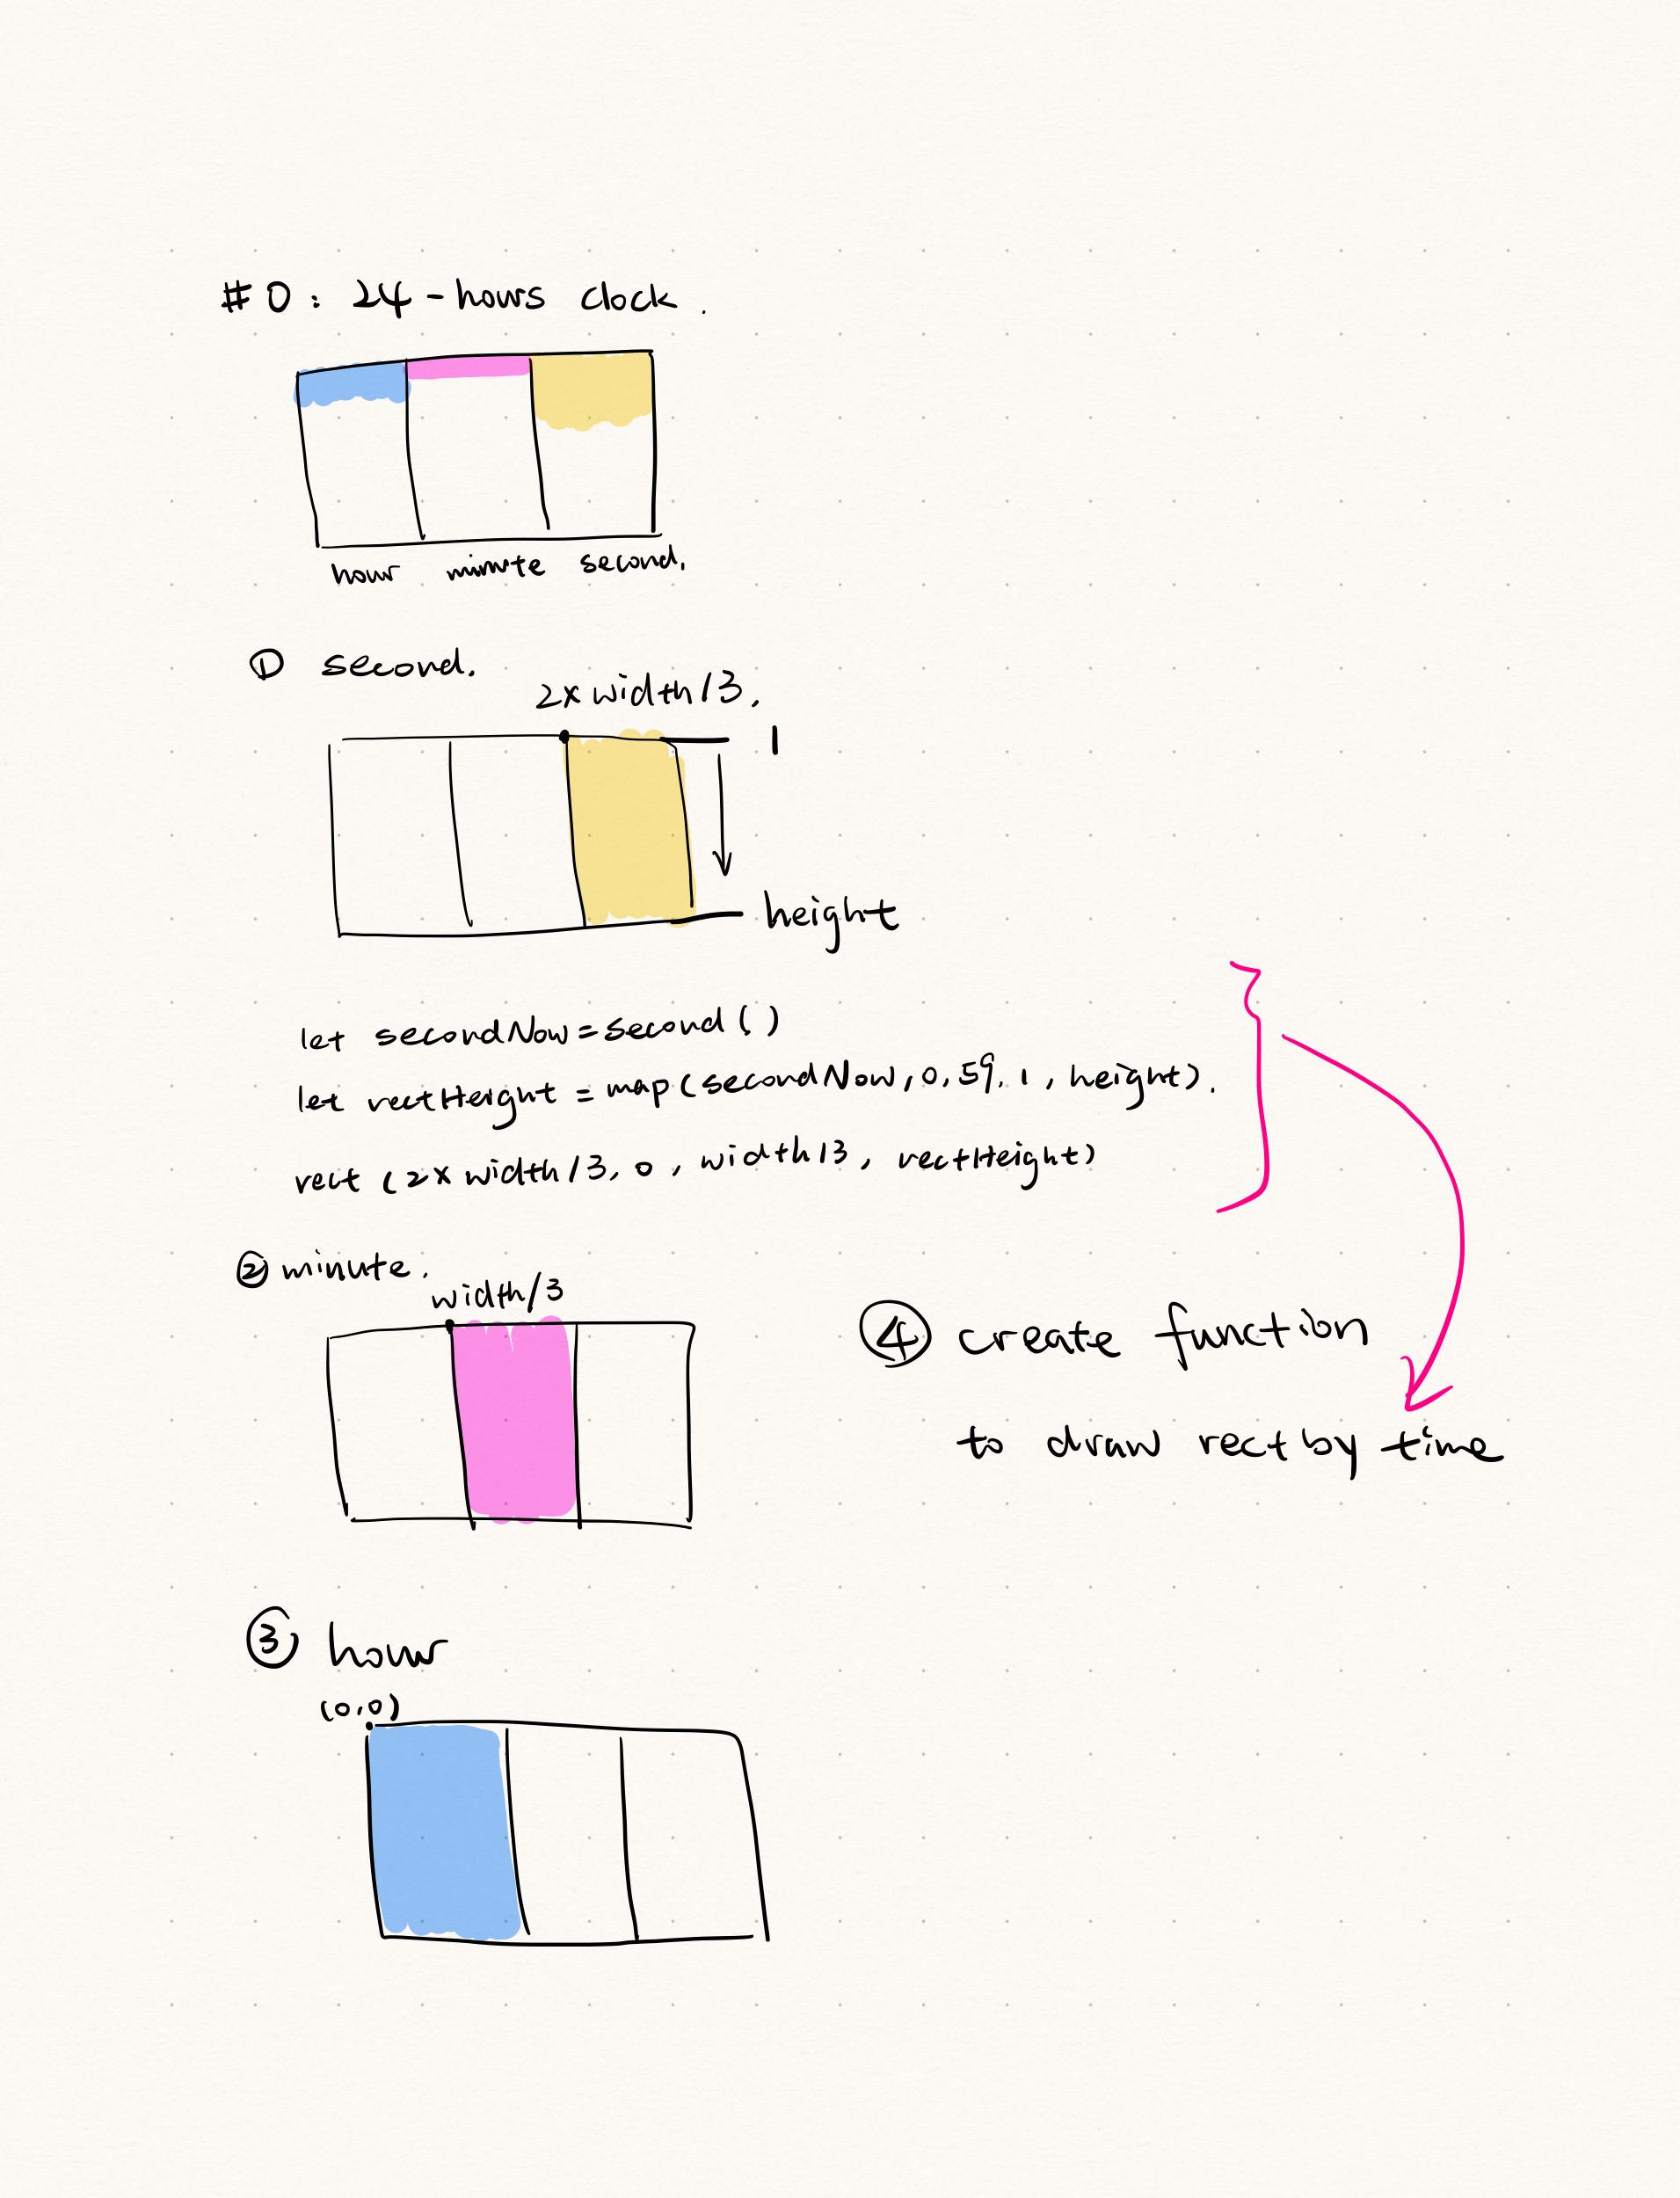 #0: 24-hours clock.
hour minute second.
① second.
2x width/3.
1
height
let secondNow=second()
let rectHeight = map(secondNow,0,59.1,height).
rect (2x width/3, 0, width/3, rectHeight)
② minute.
width/3
④ create function
to draw rect by time
③ hour
(0,0)